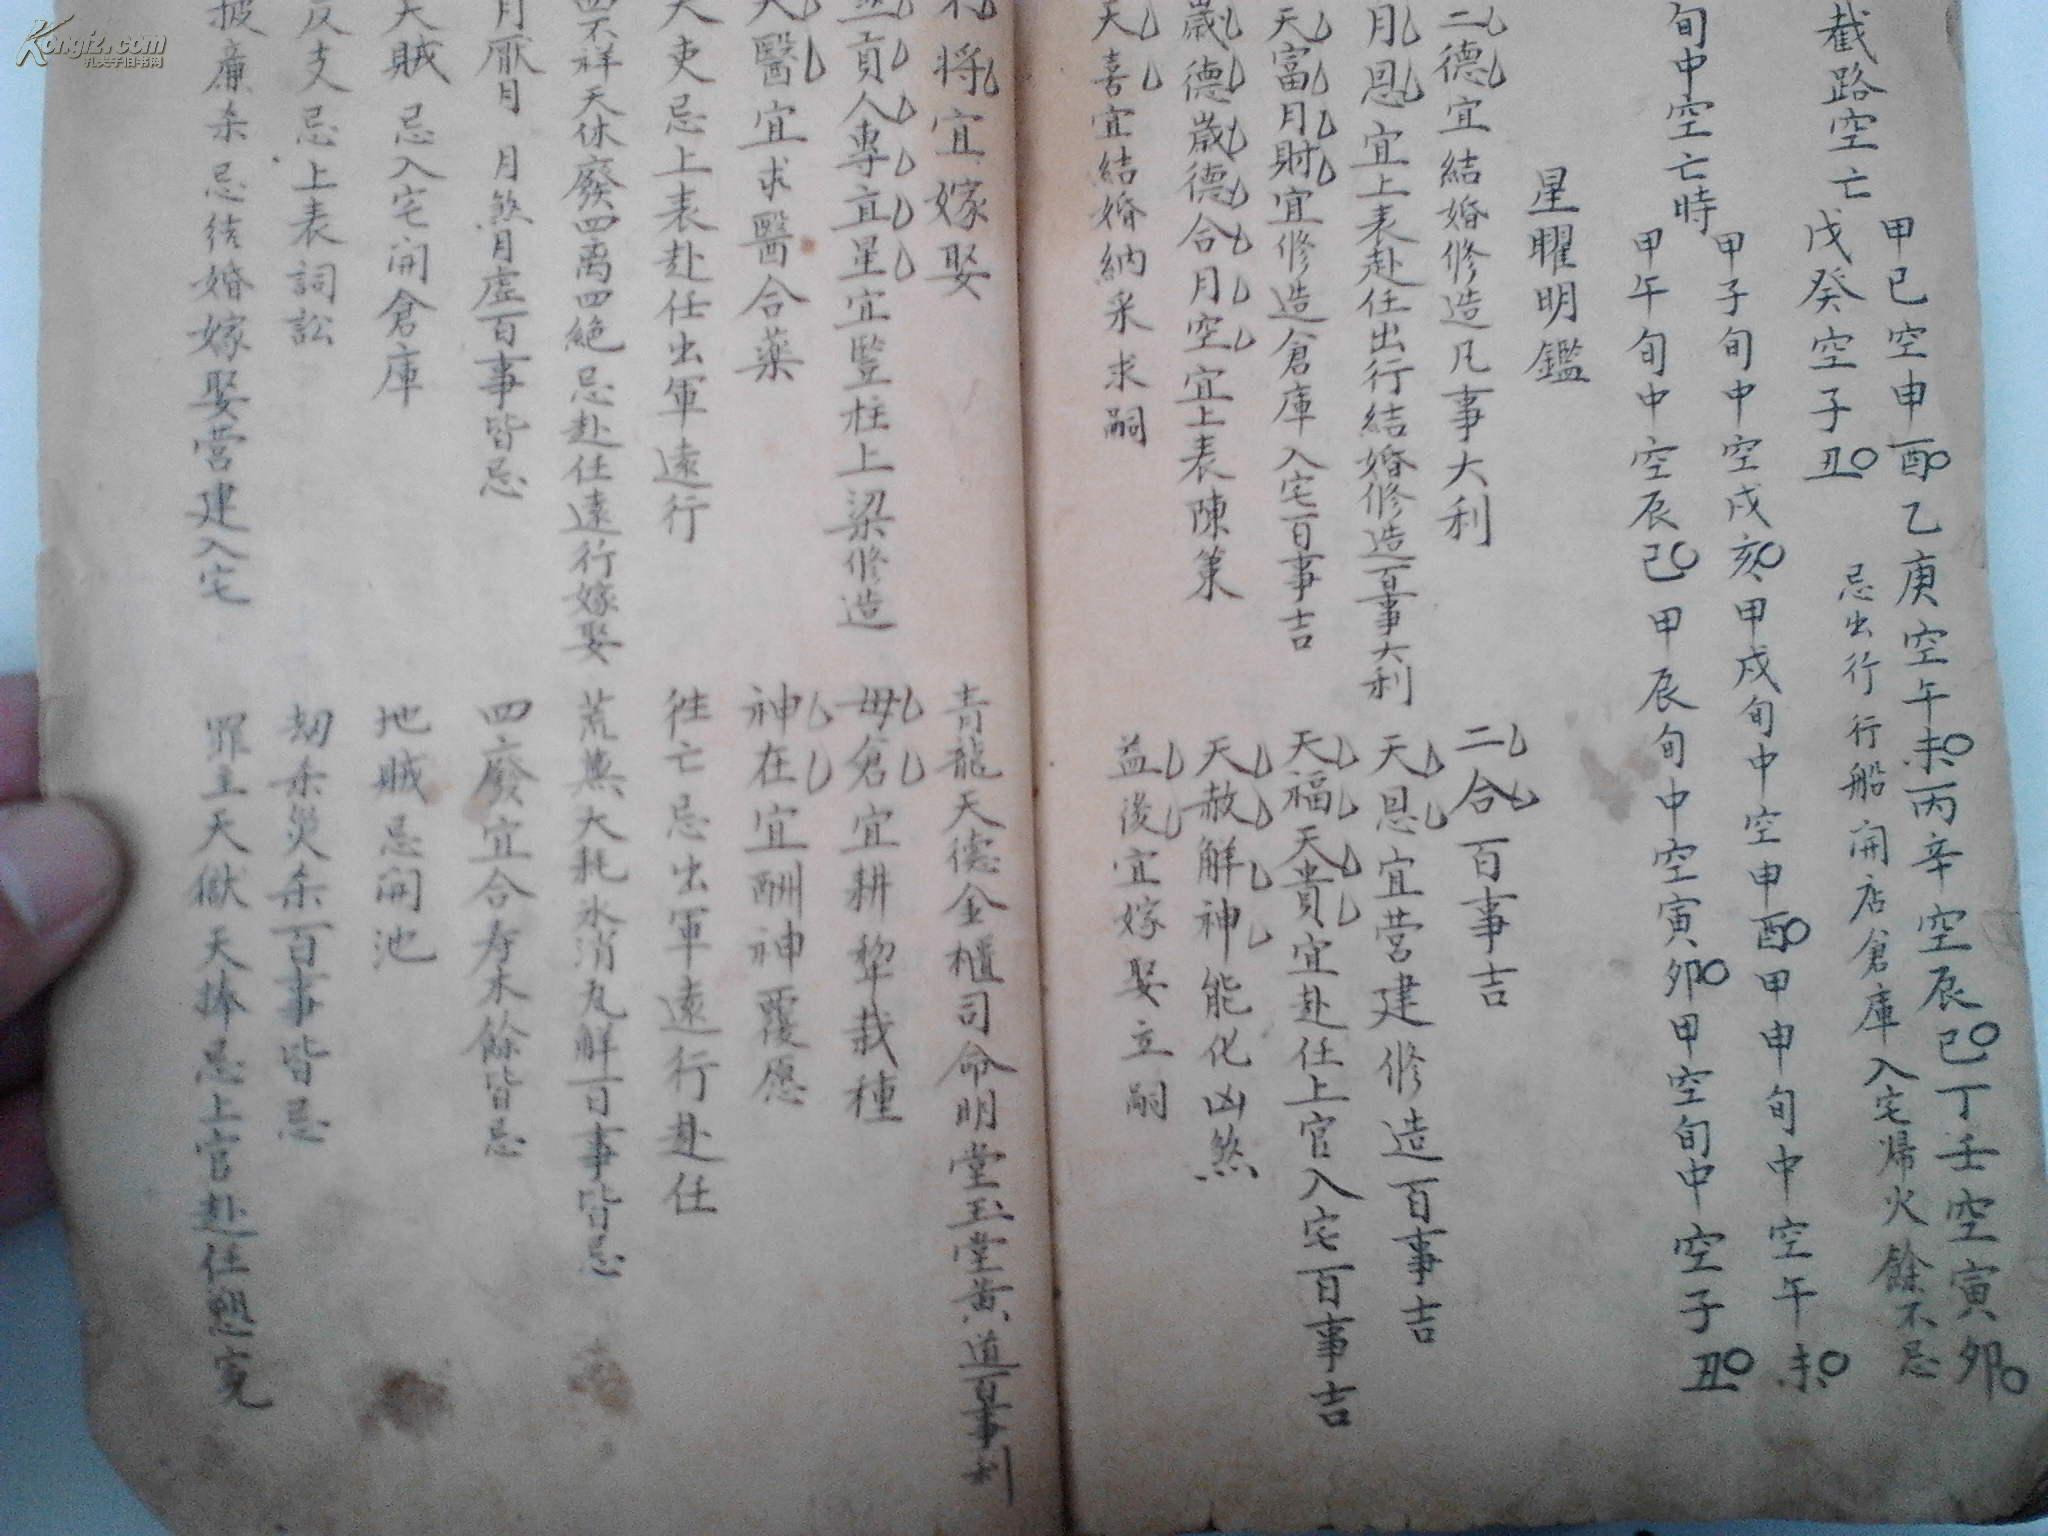 截路空亡
甲己空申酉乙庚空午未丙辛空辰巳丁壬空寅卯
戊癸空子丑
忌出行行船開店倉庫入宅帰火餘不忌
旬中空亡時
甲子旬中空戌亥甲戌旬中空申酉甲申旬中空午未
甲午旬中空辰巳甲辰旬中空寅卯甲空旬中空子丑
星曜明鑑
二德宜結婚修造凡事大利
二合百事吉
月恩宜上表赴任出行結婚修造百事大利
天恩宜营建修造百事吉
天富月財宜修造倉庫入宅百事吉
天福天貴宜赴任上官入宅百事吉
歲德歲德合月空宜上表陳策
天赦解神能化凶煞
天喜宜結婚納采求嗣
益後宜嫁娶立嗣
將宜嫁娶
青龍天德金櫃司命明堂玉堂黄道百事利
貢人專直星宜竪柱上梁修造
母倉宜耕犂栽種
天醫宜求醫合藥
神在宜酬神覆愿
天吏忌上表赴任出軍遠行
徃亡忌出軍遠行赴任
四不祥天休廢四离四絶忌赴任遠行嫁娶
荒蕪大耗氷消丸解百事皆忌
月厭月 月煞月虚百事皆忌
四廢宜合寿木餘皆忌
天賊 忌入宅開倉庫
地賊忌開池
反支忌上表詞訟
刼杀災杀百事皆忌
披廉杀忌結婚嫁娶营建入宅
罪至天獄天捧忌上官赴任
Kongfz.com
孔夫子旧书网